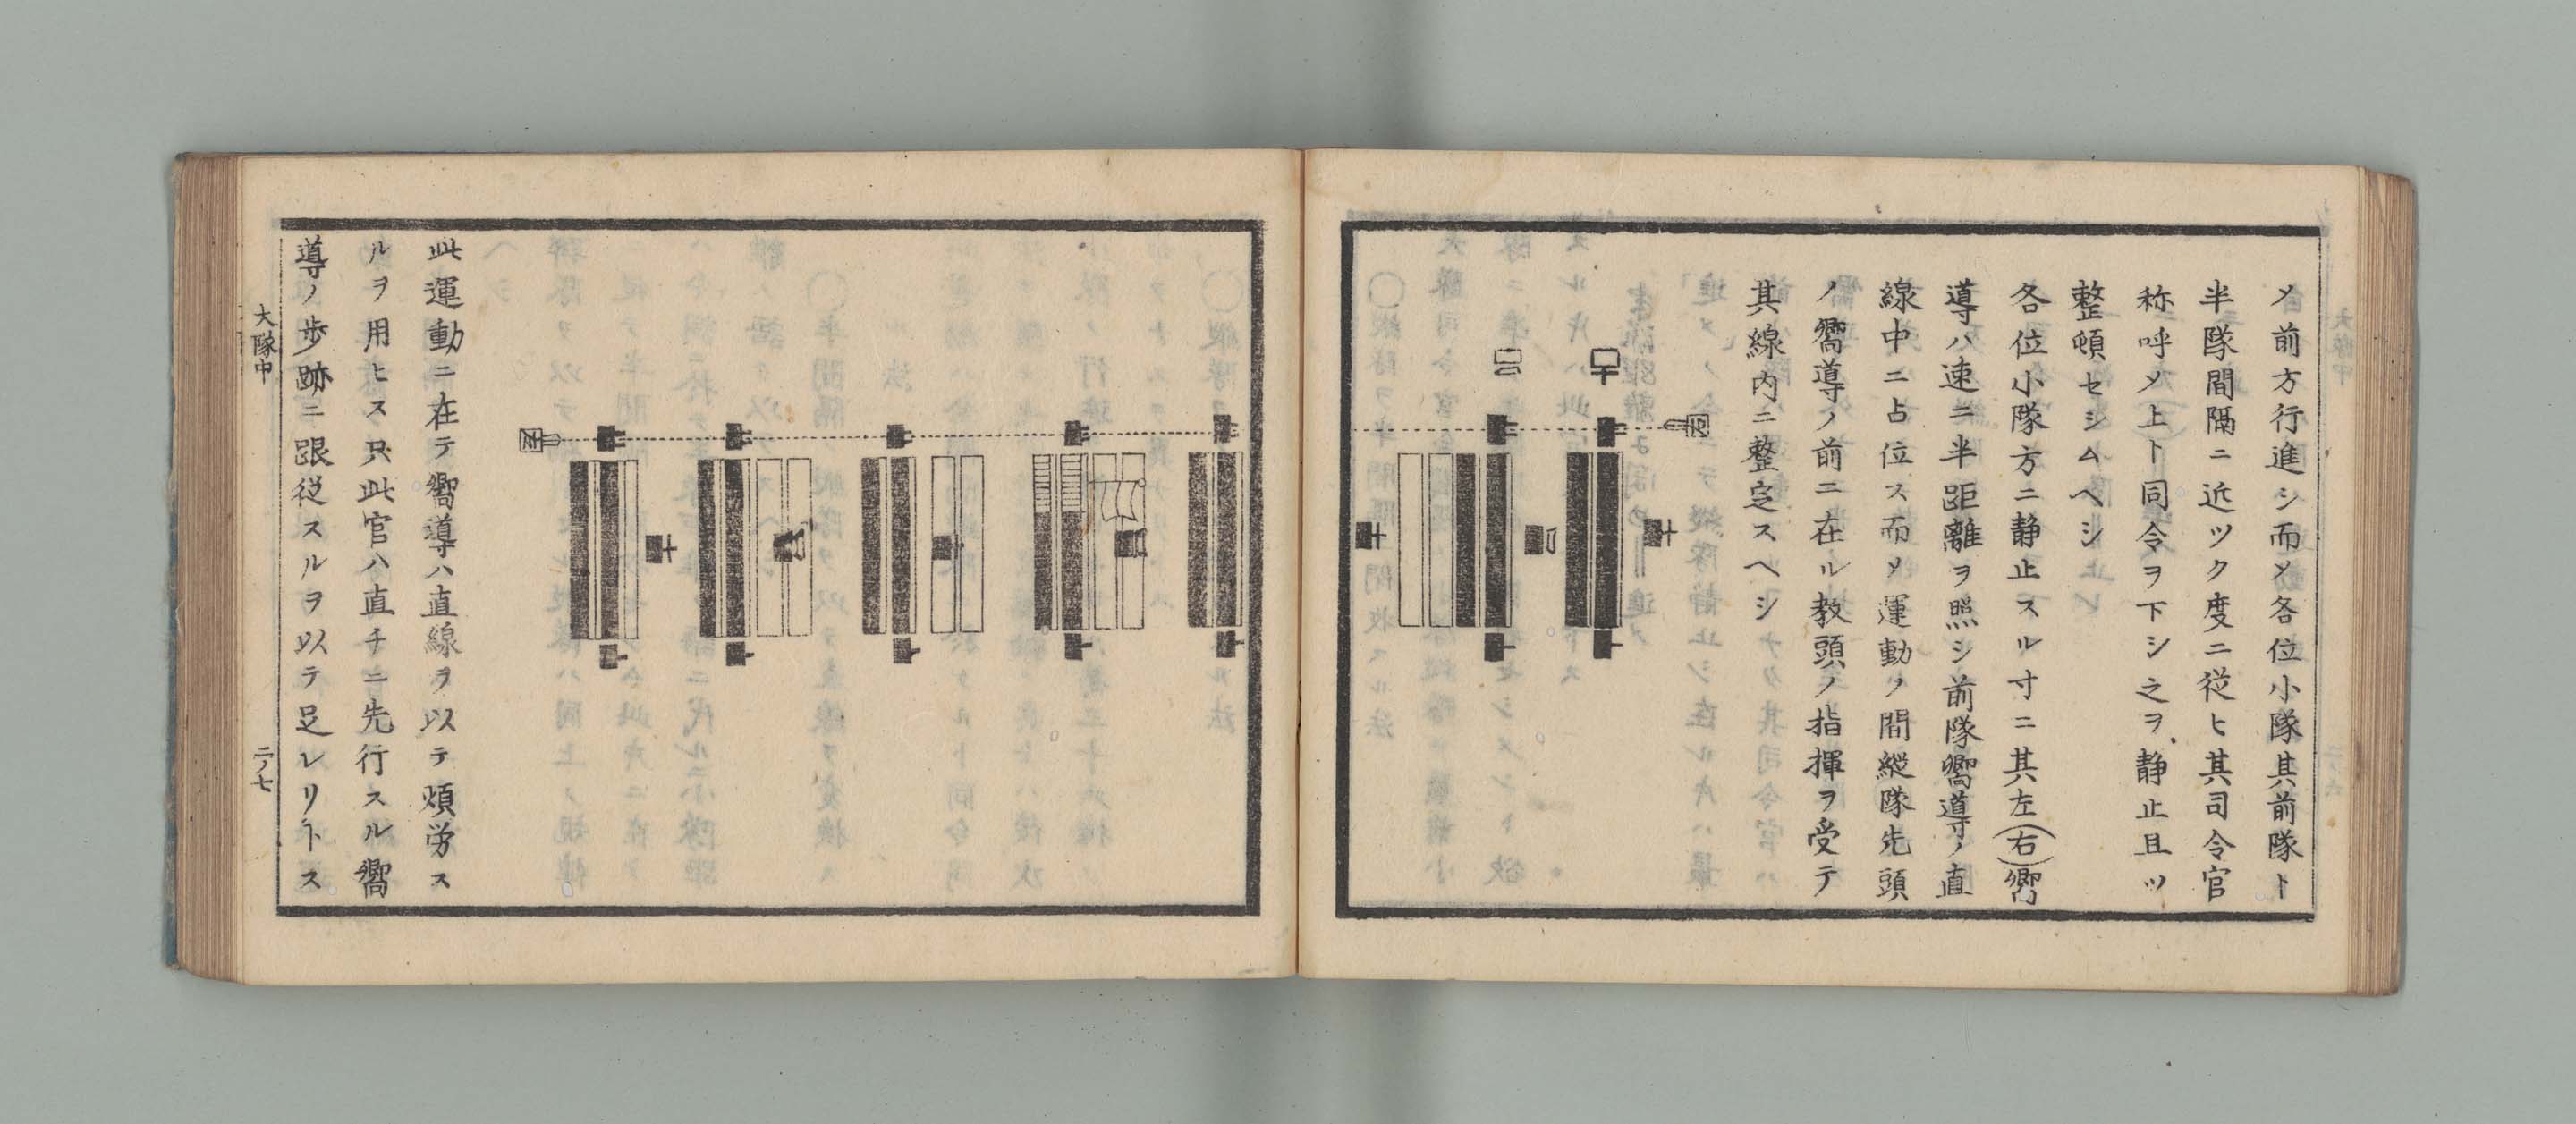 メ前方行進シ而メ各位小隊其前隊ト
半隊間隔ニ近ツク度ニ従ヒ其司令官
称呼メ上ト同令ヲ下シ之ヲ静止且ツ
整頓セシムヘシ
各位小隊方ニ静止スル寸ニ其左(右)嚮
導ハ速ニ半距離ヲ照シ前隊嚮導ノ直
線中ニ占位ス而メ運動ノ間縦隊先頭
ノ嚮導ノ前ニ在ル教頭ノ指揮ヲ受テ
其線内ニ整定スヘシ
此運動ニ在テ嚮導ハ直線ヲ以テ煩労ス
ルヲ用ヒス只此官ハ直チニ先行スル嚮
導ノ歩跡ニ跟従スルヲ以テ足レリトス
大隊中
二ノ七